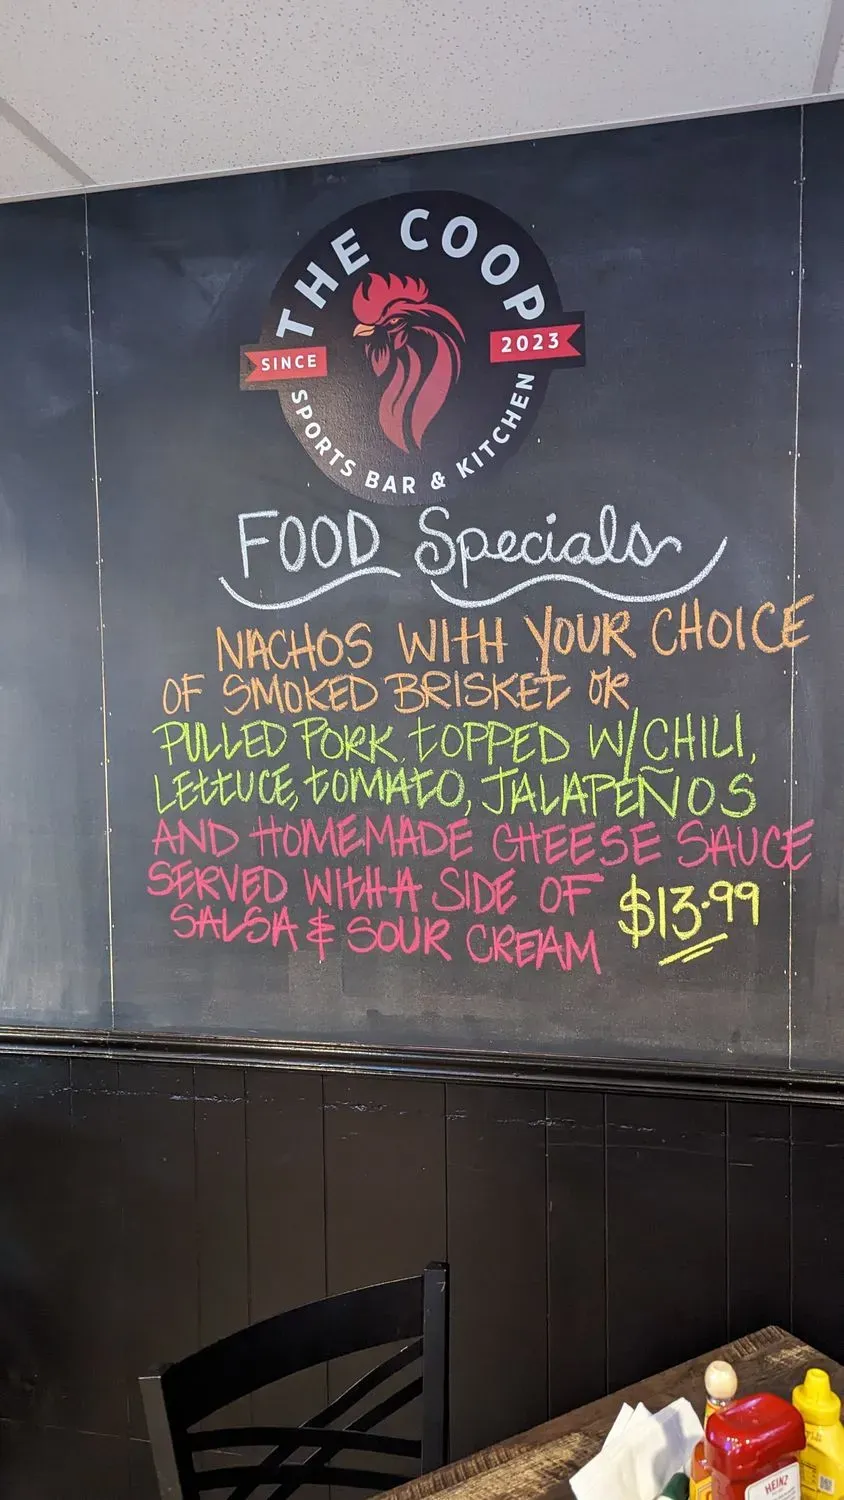 THE COOP
SINCE 2023
SPORTS BAR & KITCHEN
FOOD Specials
NACHOS WITH YOUR CHOICE
OF SMOKED BRISKET OR
PULLED PORK, TOPPED W/CHILI,
LETTUCE, TOMATO, JALAPEÑOS
AND HOMEMADE CHEESE SAUCE
SERVED WITH A SIDE OF $13.99
SALSA & SOUR CREAM
HEINZ